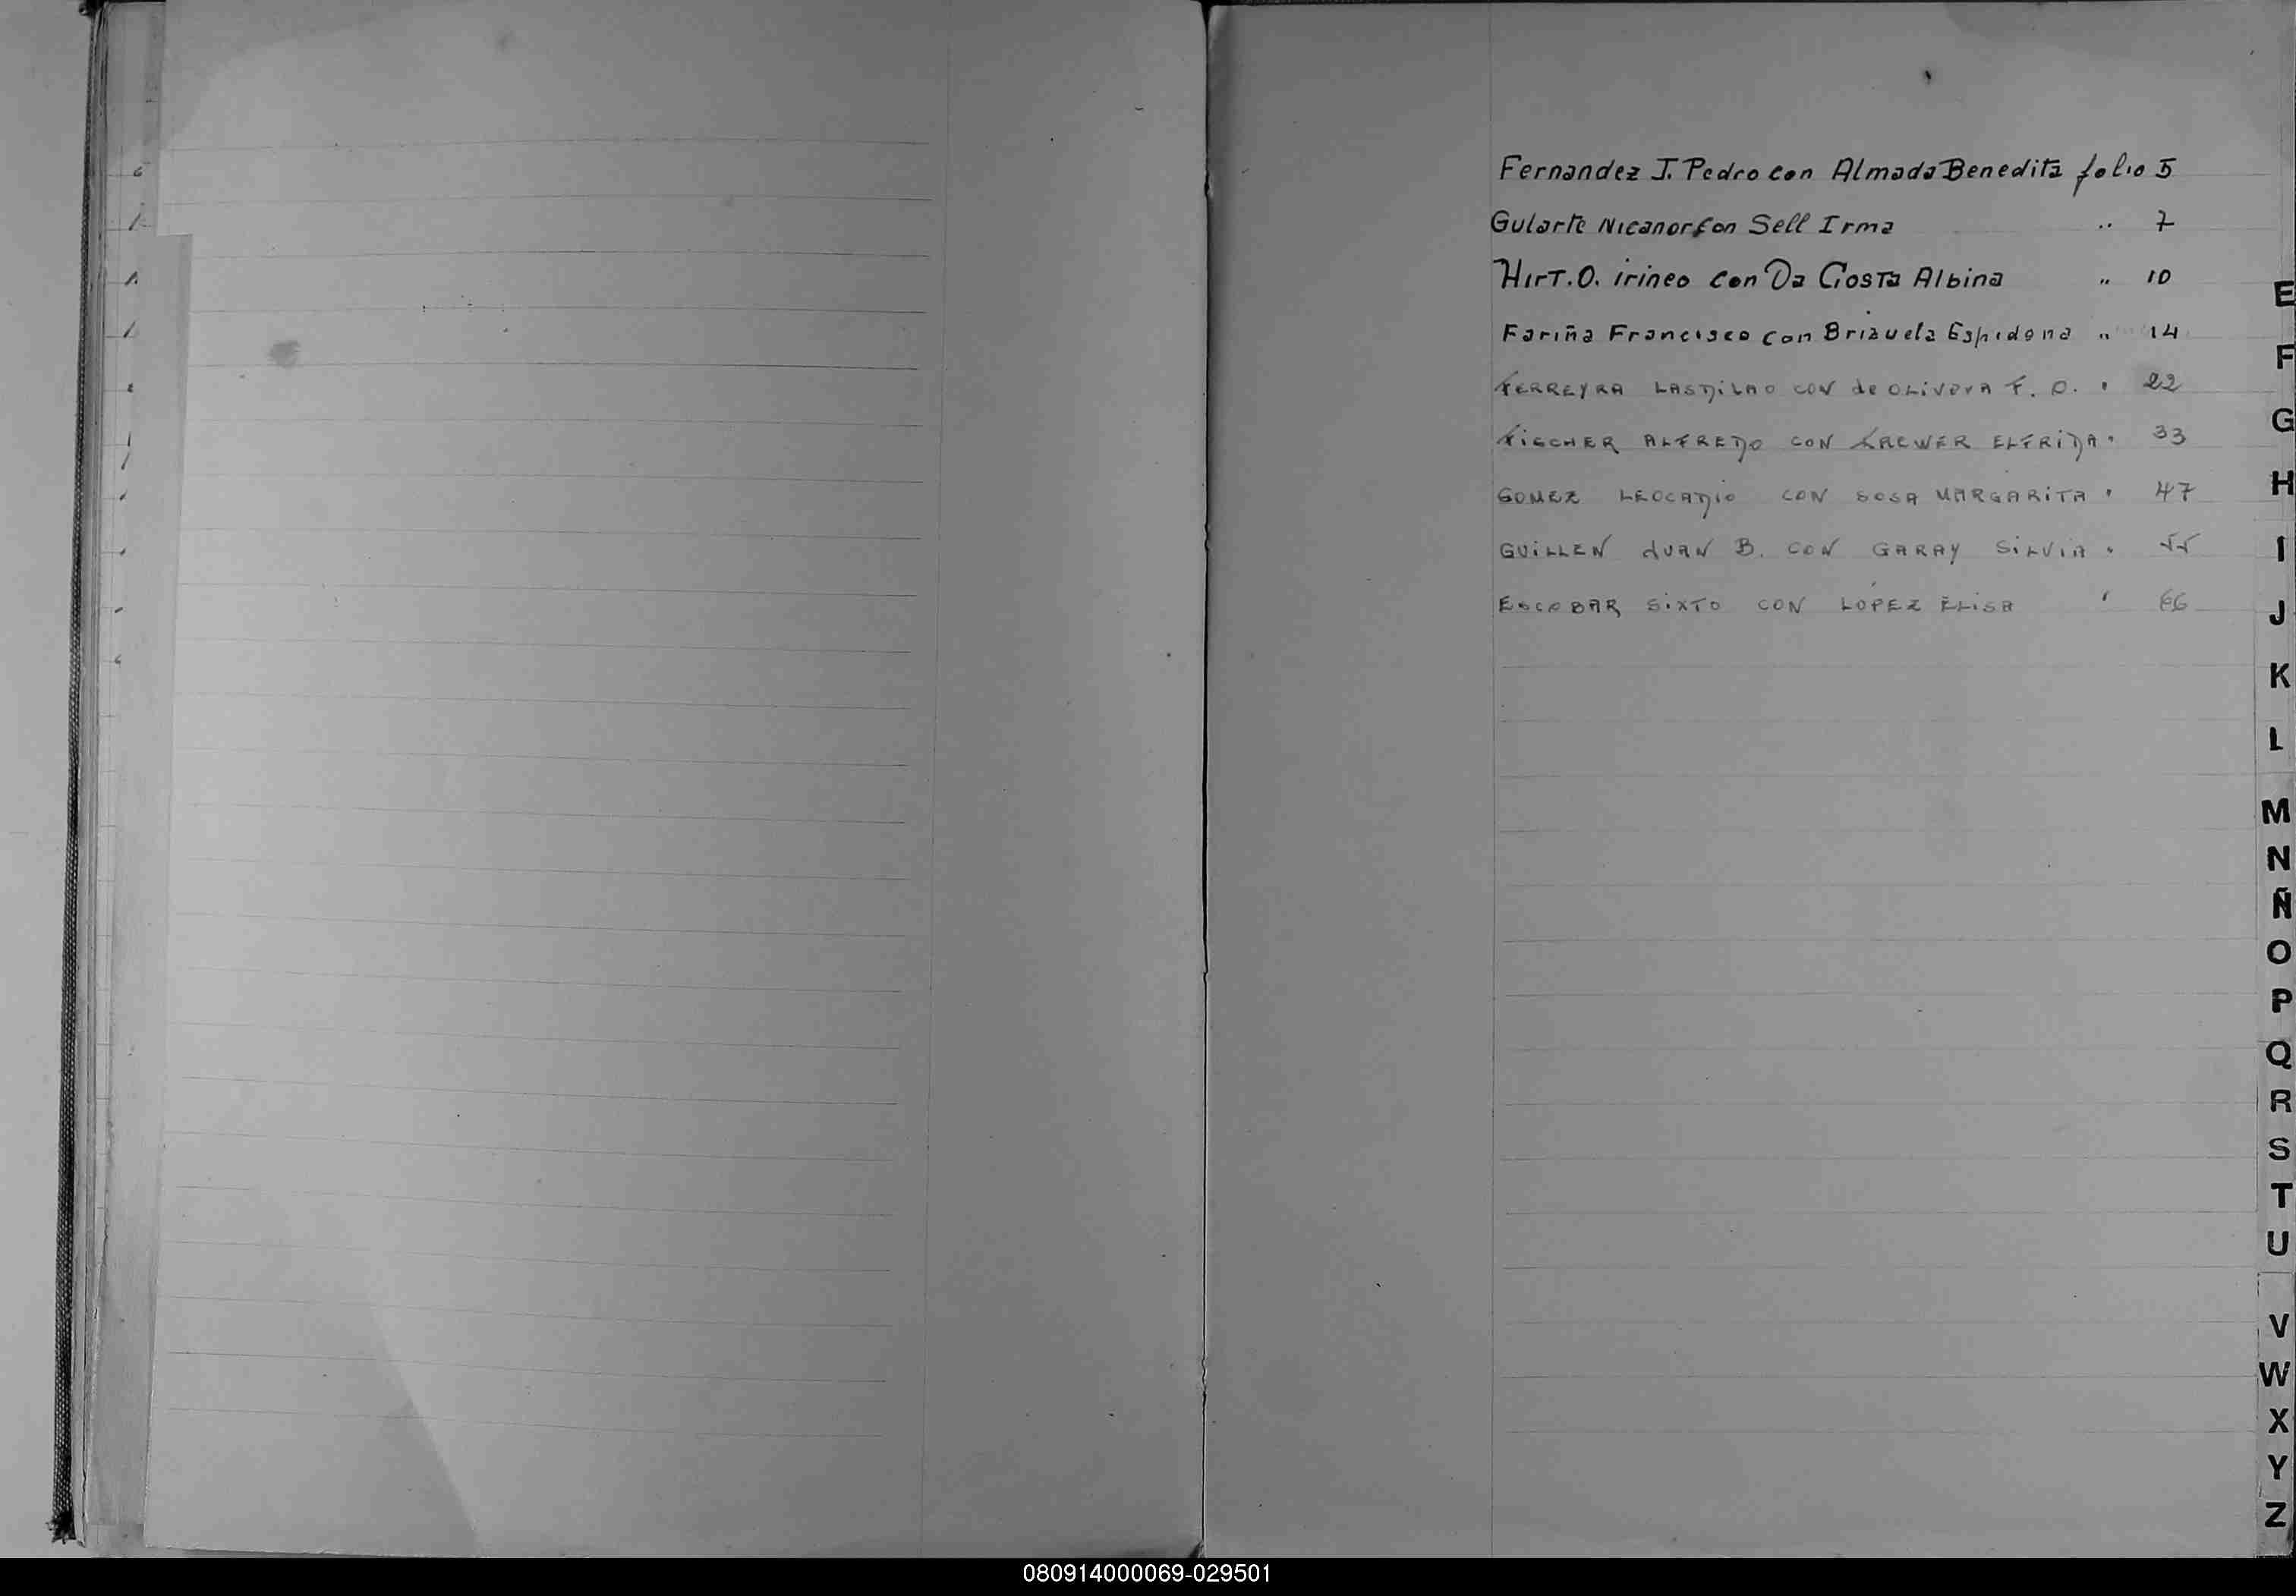 Fernandez J. Pedro con Almada Benedita folio 5
Gularte Nicanor con Sell Irma " 7
Hirt. O. irineo con Da Costa Albina " 10
Fariña Francisco con Brizuela Espidona " 14
FERREYRA LASDiLAO CON de OLiVERA F. O. " 22
FiSCHER ALFREDO CON ELFRiDA " 33
GOMEZ LEOCADiO CON SOSA MARGARiTA " 47
GUiLLEN JUAN B. CON GARAY SiLViA " 55
ESCOBAR SiXTO CON LÓPEZ ELiSA " 66
E
F
G
H
I
J
K
L
M
N
Ñ
O
P
Q
R
S
T
U
V
W
X
Y
Z
080914000069-029501